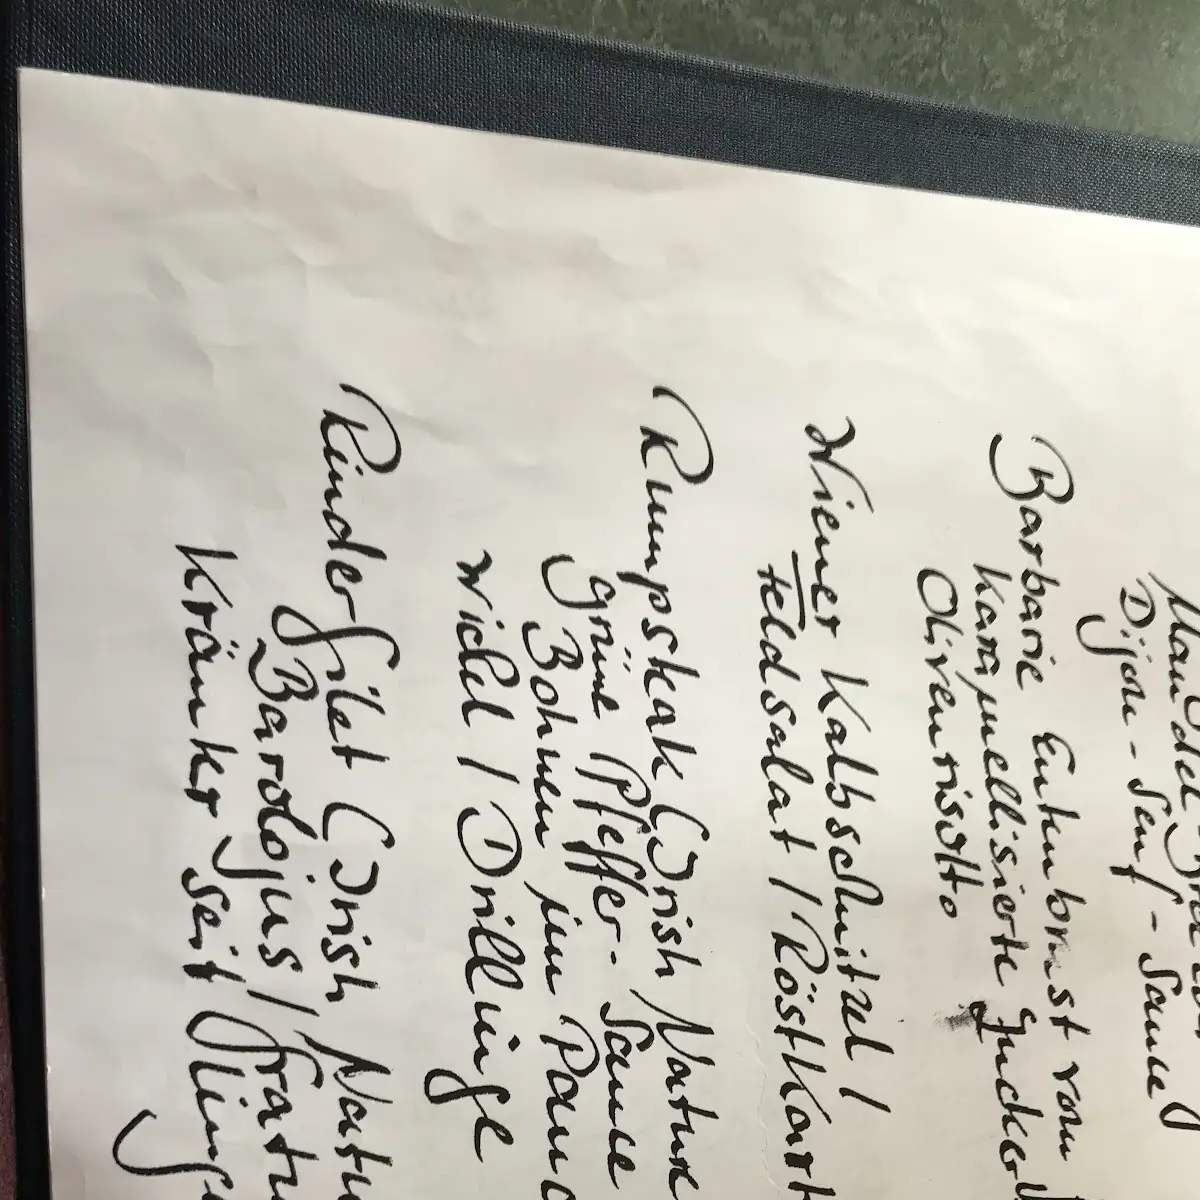 Dijon-Senf-Sauce
Barbarie Entenbrust vom
Karamellisierte
Olivenrisotto
Wiener Kalbschnitzel /
Feldsalat / Röstkart
Rumpsteak (Irish Nature
grüne Pfeffer-Sauce
Bohnen im Panc
wickel / Drillinge
Rinderfilet (Irish Natu
Barolojus / Gratin
Kräuterseitlinge